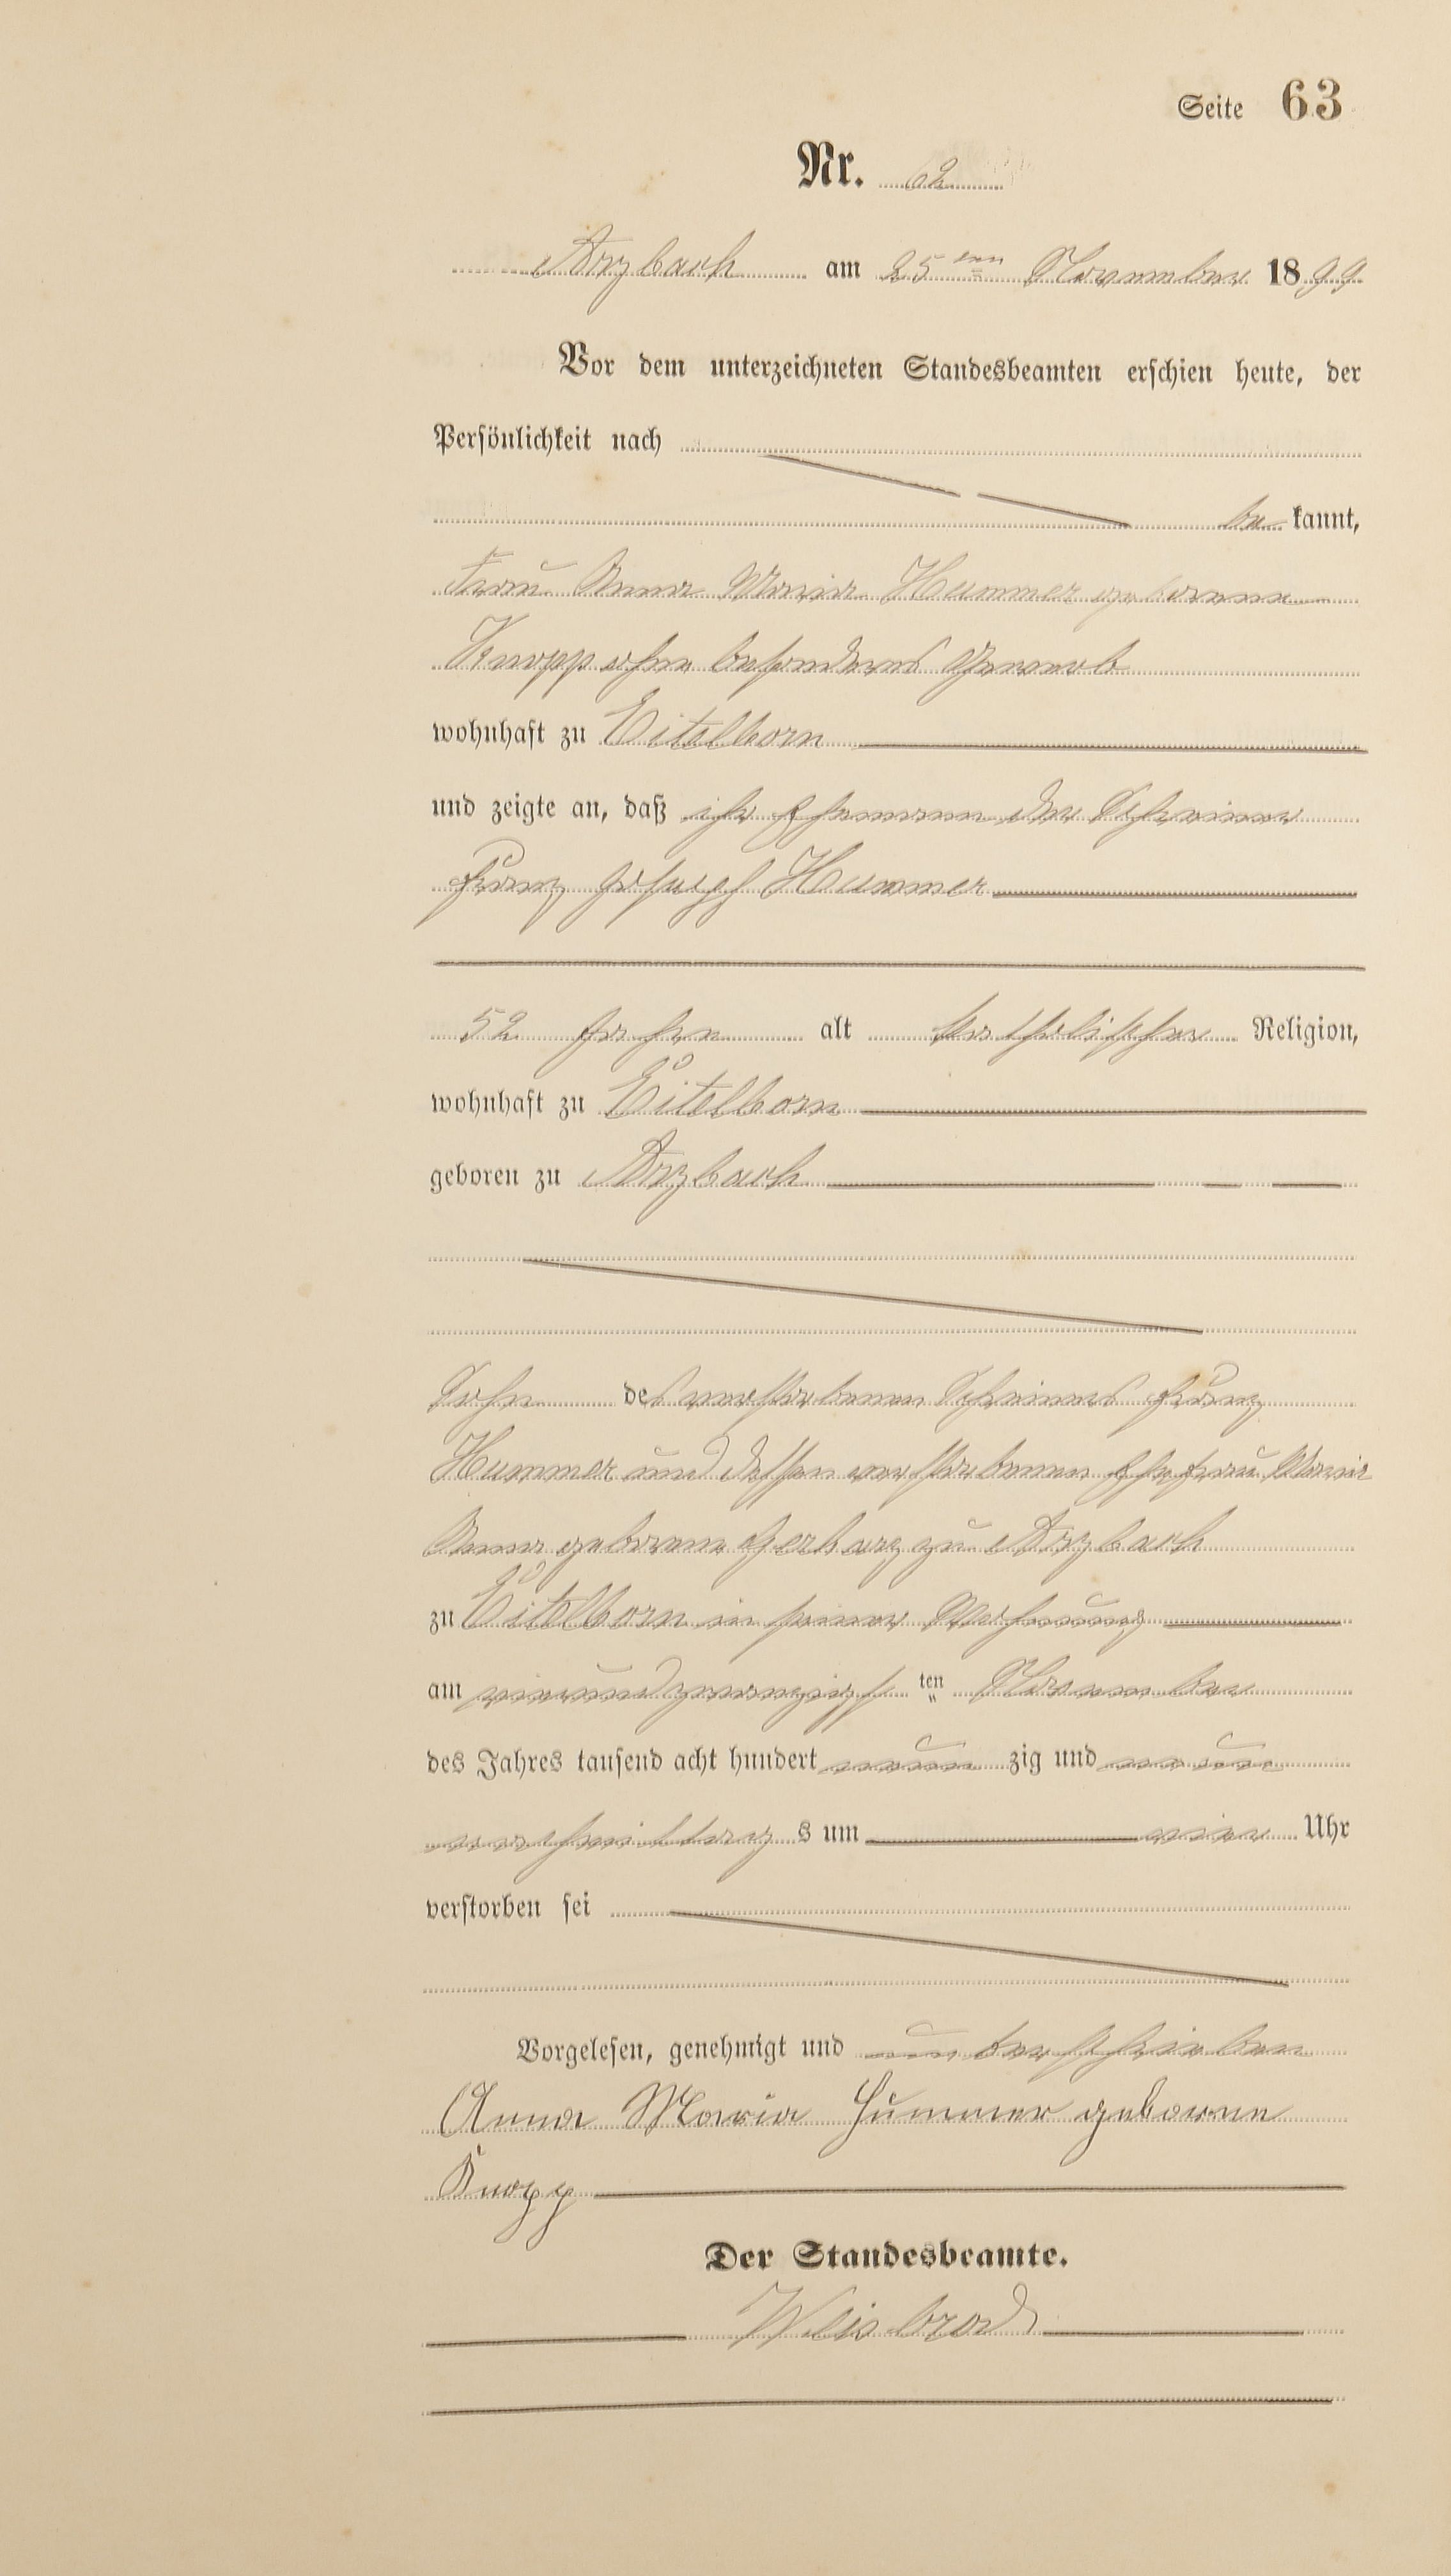 Seite 63
Nr. 62
Arzbach am 25ten November 1899
Vor dem unterzeichneten Standesbeamten erschien heute, der
Persönlichkeit nach
be kannt,
Frau Anna Maria Hummer geborene
Knopp ohne besonderes Gewerb
wohnhaft zu Eitelborn
und zeigte an, daß ihr Ehemann der Schreiner
Franz Joseph Hummer
52 Jahre alt katholischer Religion,
wohnhaft zu Eitelborn
geboren zu Arzbach
Sohn des verstorbenen Schreiners Franz
Hummer und dessen verstorbenen Ehefrau Maria
Anna geborene Gerharz zu Arzbach
zu Eitelborn in seiner Wohnung
am vierundzwanzigsten November
des Jahres tausend acht hundert neun zig und neun
nachmittags um vier Uhr
verstorben sei
Vorgelesen, genehmigt und unterschrieben
Anna Maria Hummer geborene
Knopp
Der Standesbeamte.
Weisbrod